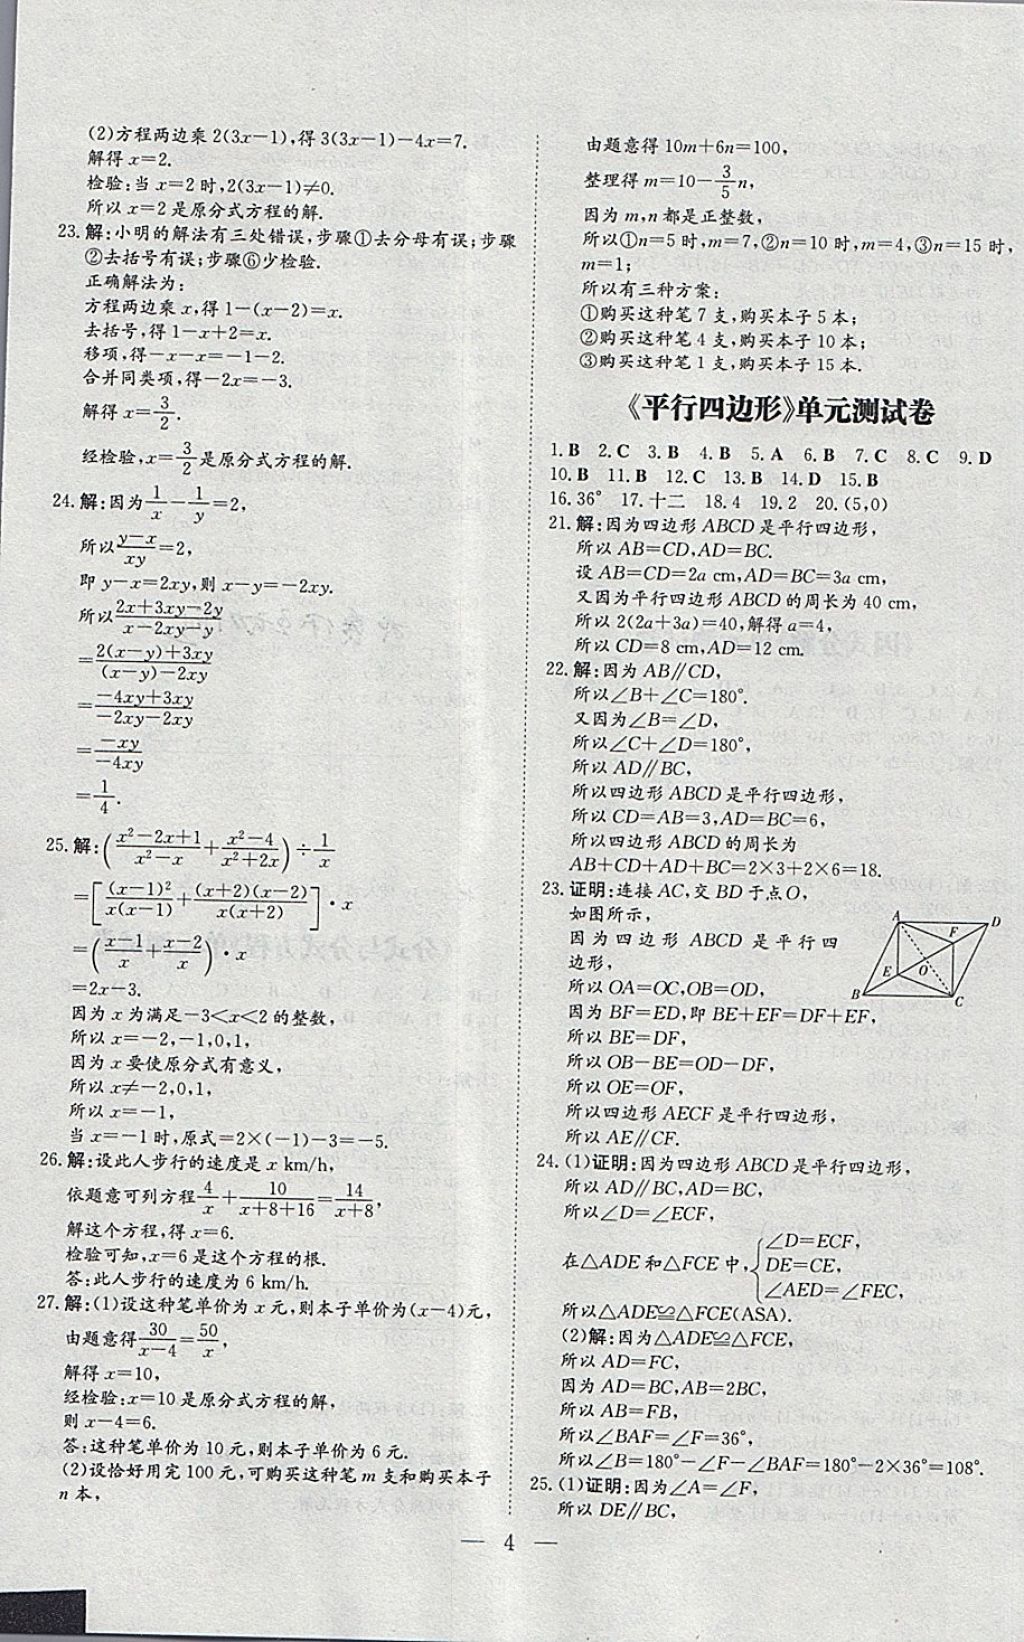 (2)方程两边乘 2(3x-1),得 3(3x-1)-4x=7.
解得 x=2.
检验:当 x=2 时,2(3x-1)≠0.
所以 x=2 是原分式方程的解.
23.解:小明的解法有三处错误,步骤①去分母有误;步骤
②去括号有误;步骤⑥少检验.
正确解法为:
方程两边乘 x,得 1-(x-2)=x.
去括号,得 1-x+2=x.
移项,得-x-x=-1-2.
合并同类项,得-2x=-3.
解得 x=3/2.
经检验,x=3/2是原分式方程的解.
24.解:因为1/x-1/y=2,
所以(y-x)/xy=2,
即 y-x=2xy,则 x-y=-2xy.
所以(2x+3xy-2y)/(x-2xy-y)
=(2(x-y)+3xy)/((x-y)-2xy)
=(-4xy+3xy)/(-2xy-2xy)
=(-xy)/(-4xy)
=1/4.
25.解:((x²-2x+1)/(x²-x)+(x²-4)/(x²+2x))÷1/x
=[(x-1)²/(x(x-1))+(x+2)(x-2)/(x(x+2))]·x
=((x-1)/x+(x-2)/x)·x
=2x-3.
因为 x 为满足-3<x<2 的整数,
所以 x=-2,-1,0,1,
因为 x 要使原分式有意义,
所以 x≠-2,0,1,
所以 x=-1,
当 x=-1 时,原式=2×(-1)-3=-5.
26.解:设此人步行的速度是 x km/h,
依题意可列方程4/x+10/(x+8+16)=14/(x+8),
解这个方程,得 x=6.
检验可知,x=6 是这个方程的根.
答:此人步行的速度为 6 km/h.
27.解:(1)设这种笔单价为 x 元,则本子单价为(x-4)元,
由题意得30/(x-4)=50/x,
解得 x=10,
经检验:x=10 是原分式方程的解,
则 x-4=6.
答:这种笔单价为 10 元,则本子单价为 6 元.
(2)设恰好用完 100 元,可购买这种笔 m 支和购买本子
n 本,
由题意得 10m+6n=100,
整理得 m=10-3/5n,
因为 m,n 都是正整数,
所以①n=5 时,m=7,②n=10 时,m=4,③n=15 时,
m=1;
所以有三种方案:
①购买这种笔 7 支,购买本子 5 本;
②购买这种笔 4 支,购买本子 10 本;
③购买这种笔 1 支,购买本子 15 本.
《平行四边形》单元测试卷
1.B 2.C 3.B 4.B 5.A 6.B 7.C 8.C 9.D
10.B 11.B 12.C 13.B 14.D 15.B
16.36° 17.十二 18.4 19.2 20.(5,0)
21.解:因为四边形 ABCD 是平行四边形,
所以 AB=CD,AD=BC.
设 AB=CD=2a cm,AD=BC=3a cm,
又因为平行四边形 ABCD 的周长为 40 cm,
所以 2(2a+3a)=40,解得 a=4,
所以 CD=8 cm,AD=12 cm.
22.解:因为 AB∥CD,
所以∠B+∠C=180°.
又因为∠B=∠D,
所以∠C+∠D=180°,
所以 AD∥BC,
所以四边形 ABCD 是平行四边形,
所以 CD=AB=3,AD=BC=6,
所以四边形 ABCD 的周长为
AB+CD+AD+BC=2×3+2×6=18.
23.证明:连接 AC,交 BD 于点 O,
如图所示,
因为四边形 ABCD 是平行四
边形,
所以 OA=OC,OB=OD,
因为 BF=ED,即 BE+EF=DF+EF,
所以 BE=DF,
所以 OB-BE=OD-DF,
所以 OE=OF,
所以四边形 AECF 是平行四边形,
所以 AE∥CF.
A D F E O B C
24.(1)证明:因为四边形 ABCD 是平行四边形,
所以 AD∥BC,AD=BC,
所以∠D=∠ECF,
在△ADE 和△FCE 中,{∠D=ECF,
DE=CE,
∠AED=∠FEC,
所以△ADE≌△FCE(ASA).
(2)解:因为△ADE≌△FCE,
所以 AD=FC,
因为 AD=BC,AB=2BC,
所以 AB=FB,
所以∠BAF=∠F=36°,
所以∠B=180°-∠F-∠BAF=180°-2×36°=108°.
25.(1)证明:因为∠A=∠F,
所以 DE∥BC,
— 4 —